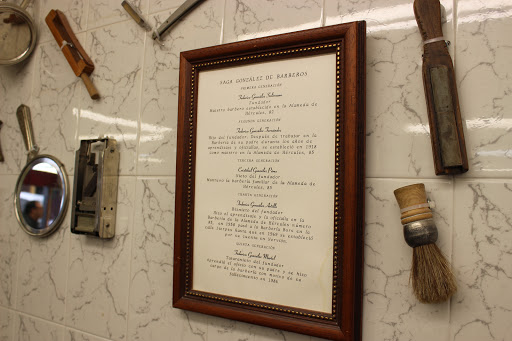 SAGA GONZÁLEZ DE BARBEROS
PRIMERA GENERACIÓN
Federico González
Fundador
Maestro barbero establecido en la Alameda de
Hércules, 87
SEGUNDA GENERACIÓN
Federico González
Hijo del fundador. Después de trabajar en la
barbería de su padre durante los años de
aprendizaje y oficialía, se estableció en 1918
como maestro en la Alameda de Hércules, 85
TERCERA GENERACIÓN
Cristóbal González
Nieto del fundador
Mantiene la barbería familiar de la Alameda de
Hércules, 85
CUARTA GENERACIÓN
Federico González
Bisnieto del fundador
Hizo el aprendizaje y la oficialía en la
barbería de la Alameda de Hércules número
85, en 1958 pasó a la barbería
calle hasta que en 1969 se estableció
por su cuenta en
QUINTA GENERACIÓN
Federico González
Tataranieto del fundador
Aprendió el oficio con su padre y se hizo
cargo de la barbería
en 1986